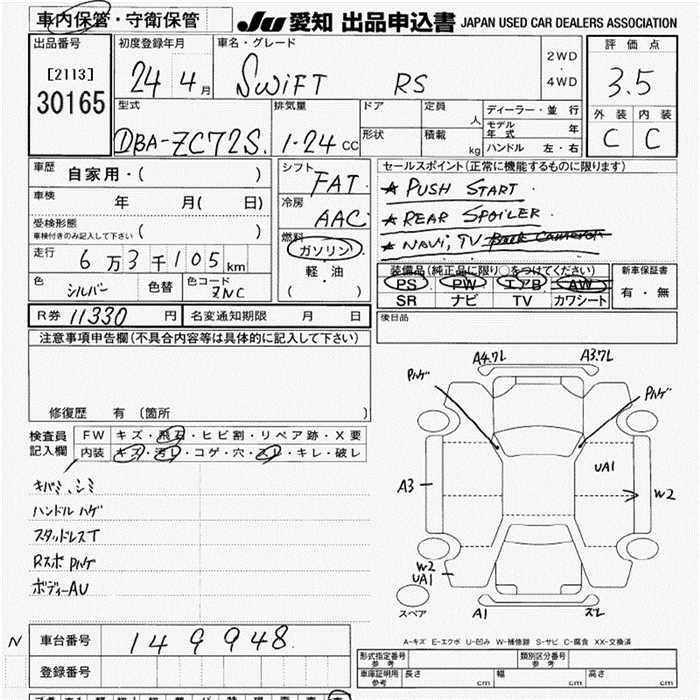 車内保管・守衛保管
JU 愛知 出品申込書 JAPAN USED CAR DEALERS ASSOCIATION
出品番号
[2113]
30165
初度登録年月
24 4月
車名・グレード
SWiFT RS
2WD
・
4WD
評価点
3.5
外装 内装
C C
型式
DBA-ZC72S.
排気量
1.24 CC
ドア
形状
定員
人
積載
kg
ディーラー・並行
モデル年式 年
ハンドル 左・右
車歴
自家用・( )
車検
年 月( 日)
受検形態
車検付きのみ記入して下さい ( )
走行
6万3千105km
色 シルバー 色替
色コード ZNC
シフト
FAT.
冷房
AAC
燃料
ガソリン
・
軽・油
( )
セールスポイント(正常に機能するものに限ります)
★ PUSH START.
★ REAR SPOILER.
★ NAVI, TV Back camera
装備品(純正品に限り○をつけてください)
PS PW エアB AW
SR ナビ TV カワシート
新車保証書
有・無
後日品
R券 11330 円
名変通知期限 月 日
注意事項申告欄(不具合内容等は具体的に記入して下さい)
修復歴 有 (箇所 )
検査員
記入欄
FW キズ・飛石・ヒビ割・リペア跡・X要
内装 キズ・汚レ・コゲ・穴・スレ・キレ・破レ
キバミ、シミ
ハンドル ハゲ
スタッドレスT
Rスポ Pハゲ
ボディーAU
A4.7L
A3.7L
Pハゲ
Pハゲ
UA1
A3
W2
W2
UA1
スペア
A1
ズレ
A-キズ E-エクボ U-凹み W-補修跡 S-サビ C-腐食 XX-交換済
N 車台番号 149948
登録番号
形式指定番号
参考
類別区分番号
参考
車庫証明用
参考
長さ cm 幅 cm 高さ cm